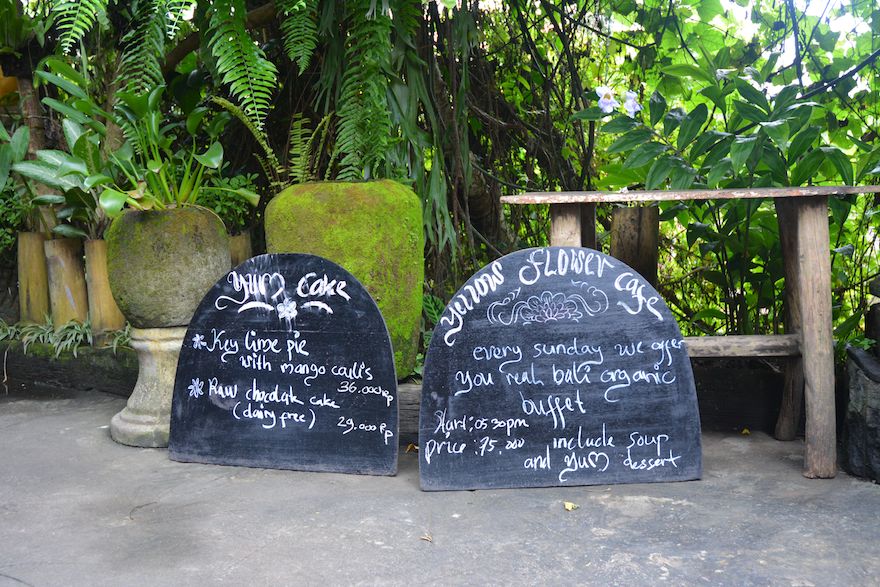 Yum Cake
Key lime pie
with mango couli's
36.000 Rp
Raw chocolate cake
(dairy free)
29.000 Rp
Yellow Flower Cafe
every sunday we offer
you real bali organic
buffet
start: 05.30pm
price: 75.000 include soup
and yum dessert